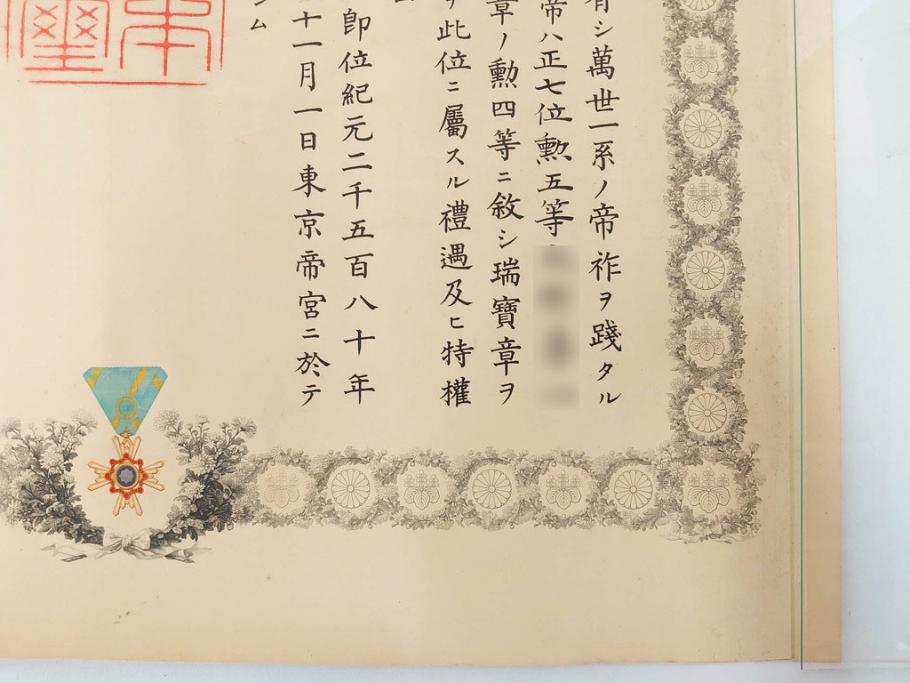 有シ萬世一系ノ帝祚ヲ踐タル
帝ハ正七位勲五等
章ノ勲四等ニ敘シ瑞寶章ヲ
此位ニ屬スル禮遇及ヒ特權
即位紀元二千五百八十年
十一月一日東京帝宮ニ於テ
シム
本
璽